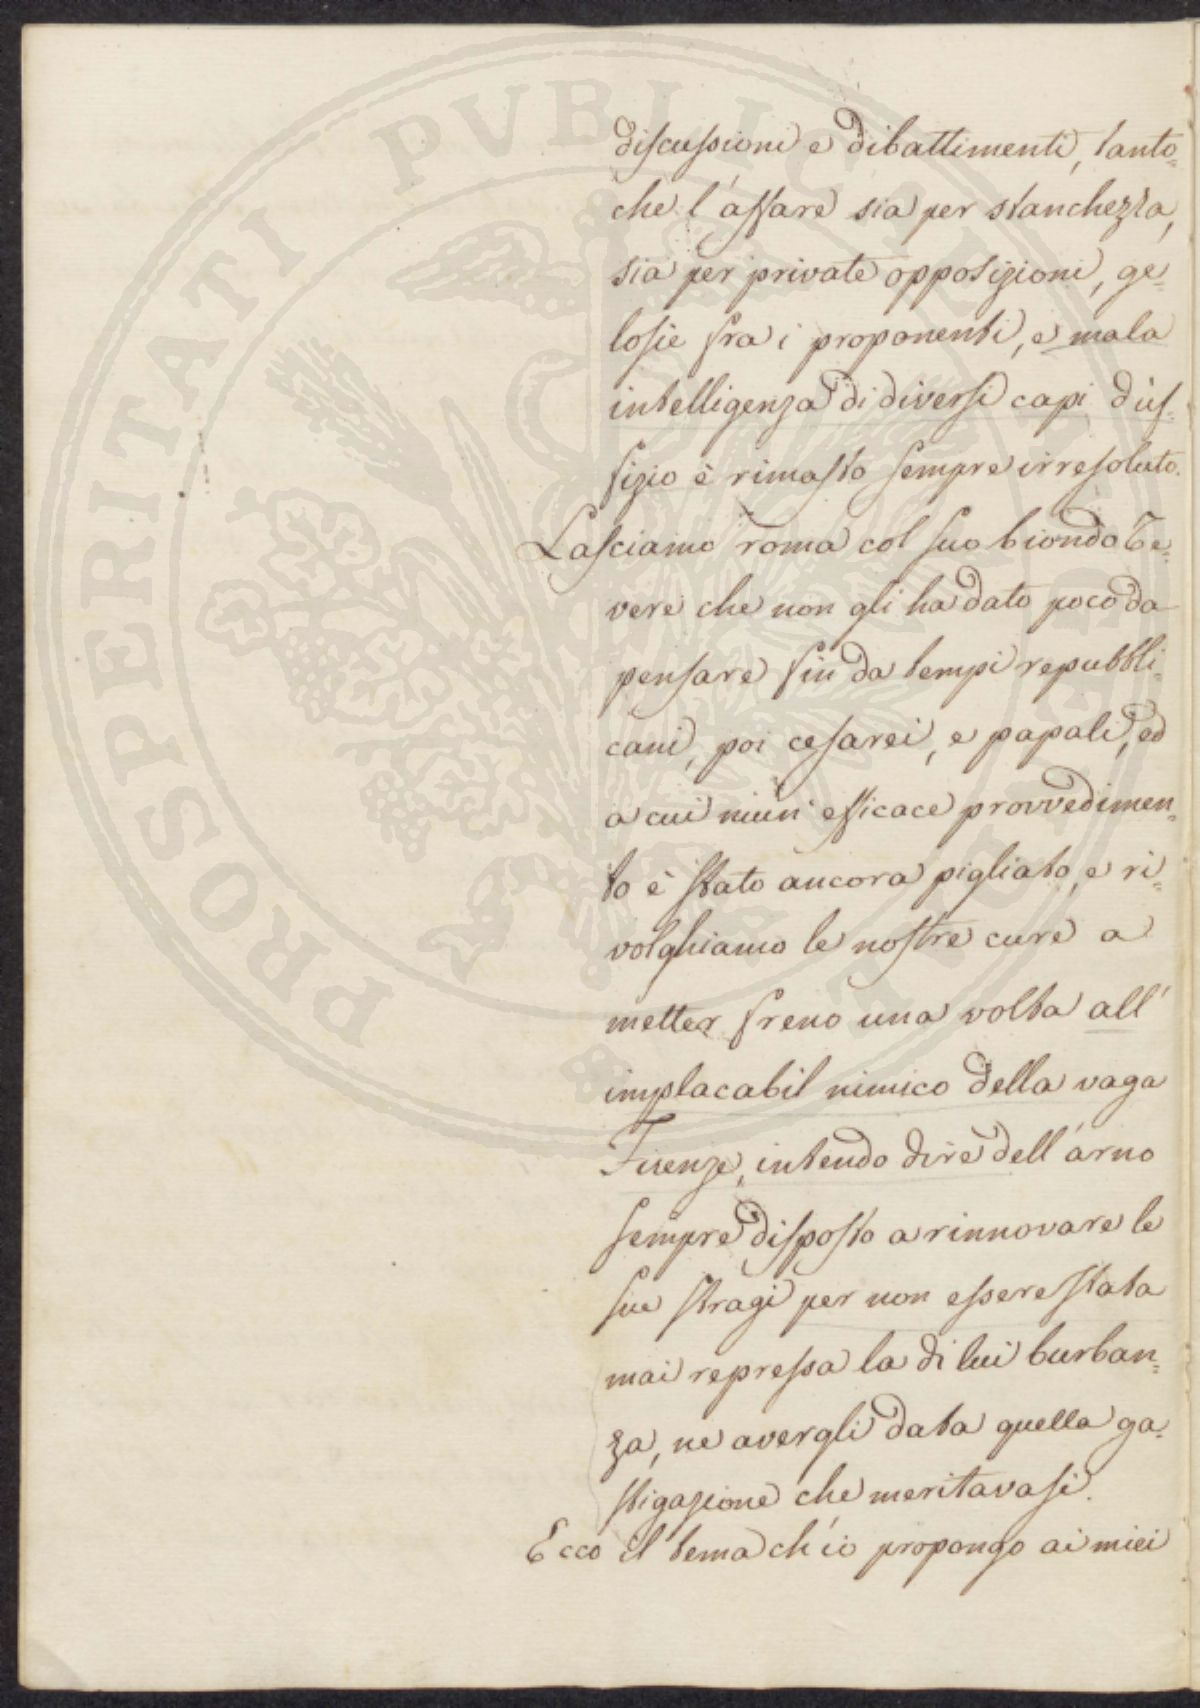 PROSPERITATI PVBLICAE AVGENDAE
discussioni e dibattimenti, tanto=
che l'affare sia per stanchezza,
sia per private opposizioni, ge=
losie fra i proponenti, e mala
intelligenza di diversi capi d'uf=
fizio è rimasto sempre irresoluto.
Lasciamo roma col suo biondo Te=
vere che non gli ha dato poco da
pensare fin da tempi repubbli=
cani, poi cesarei, e papali, ed
a cui niun efficace provvedimen=
to è stato ancora pigliato, e ri=
volghiamo le nostre cure a
metter freno una volta all'
implacabil nimico della vaga
Firenze, intendo dire dell'arno
sempre disposto a rinnovare le
sue stragi per non essere stata
mai repressa la di lui burban=
za, ne avergli data quella ga=
stigazione che meritavasi.
Ecco il tema ch'io propongo ai miei